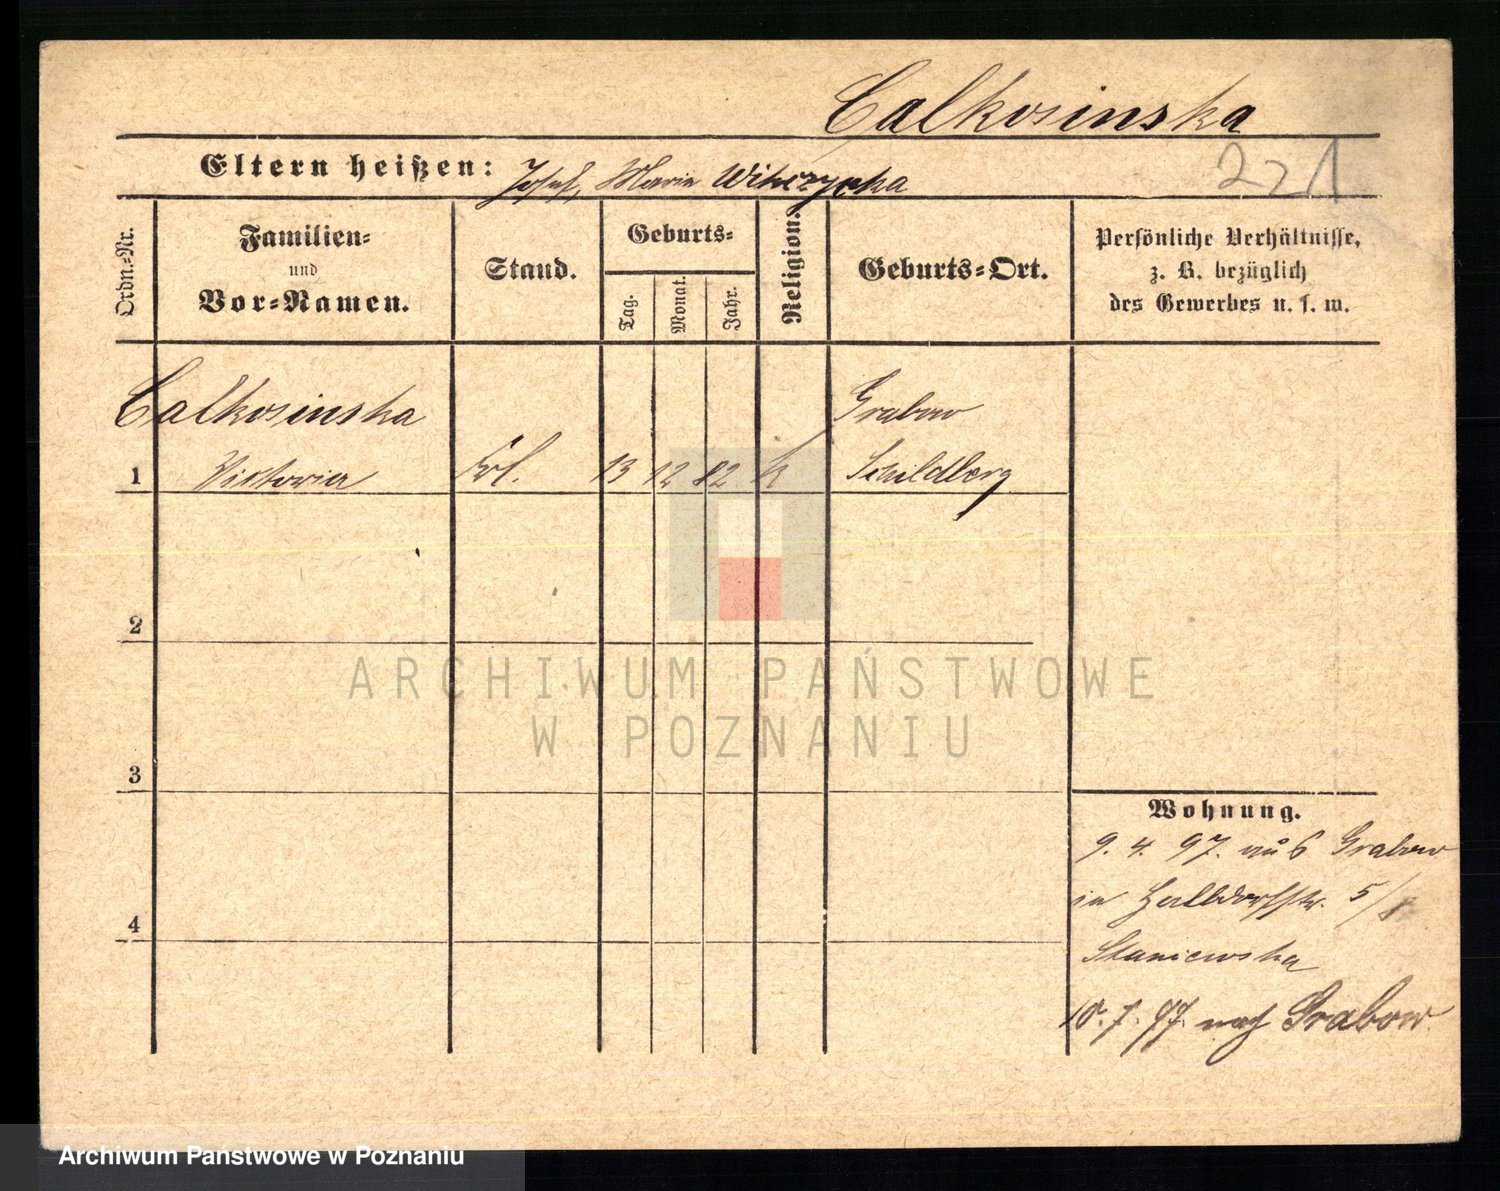 Calkosinska
Eltern heißen: Josef, Maria Witczycka
221
Ordn.-Nr.
Familien-
und
Vor-Namen.
Stand.
Geburts-
Tag.
Monat.
Jahr.
Religion.
Geburts-Ort.
Persönliche Verhältnisse,
z. B. bezüglich
des Gewerbes u. s. w.
Calkosinska
Grabow
1 Victoria Frl. 13 12 82 k Schildberg
2
3
4
Wohnung.
9. 4. 97. aus Grabow
in Halbdorfstr. 5/
Staniewska
10. 7. 97. nach Grabow.
ARCHIWUM PAŃSTWOWE
W POZNANIU
Archiwum Państwowe w Poznaniu